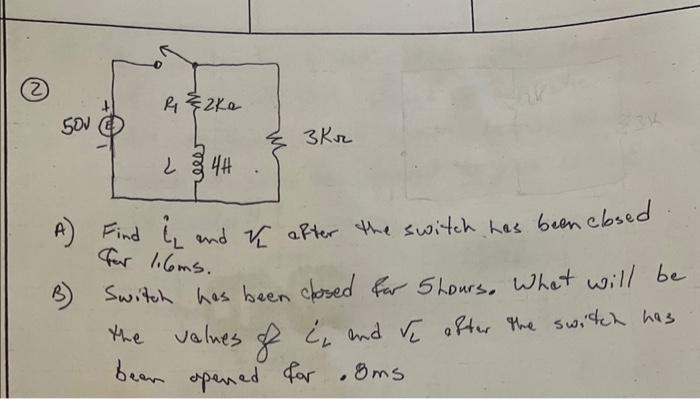 2
50V
E
+
-
R1 2KΩ
L 4H
3KΩ
A) Find iL and VL after the switch has been closed
for 1.6ms.
B) Switch has been closed for 5 hours. What will be
the values of iL and VL after the switch has
been opened for .8ms